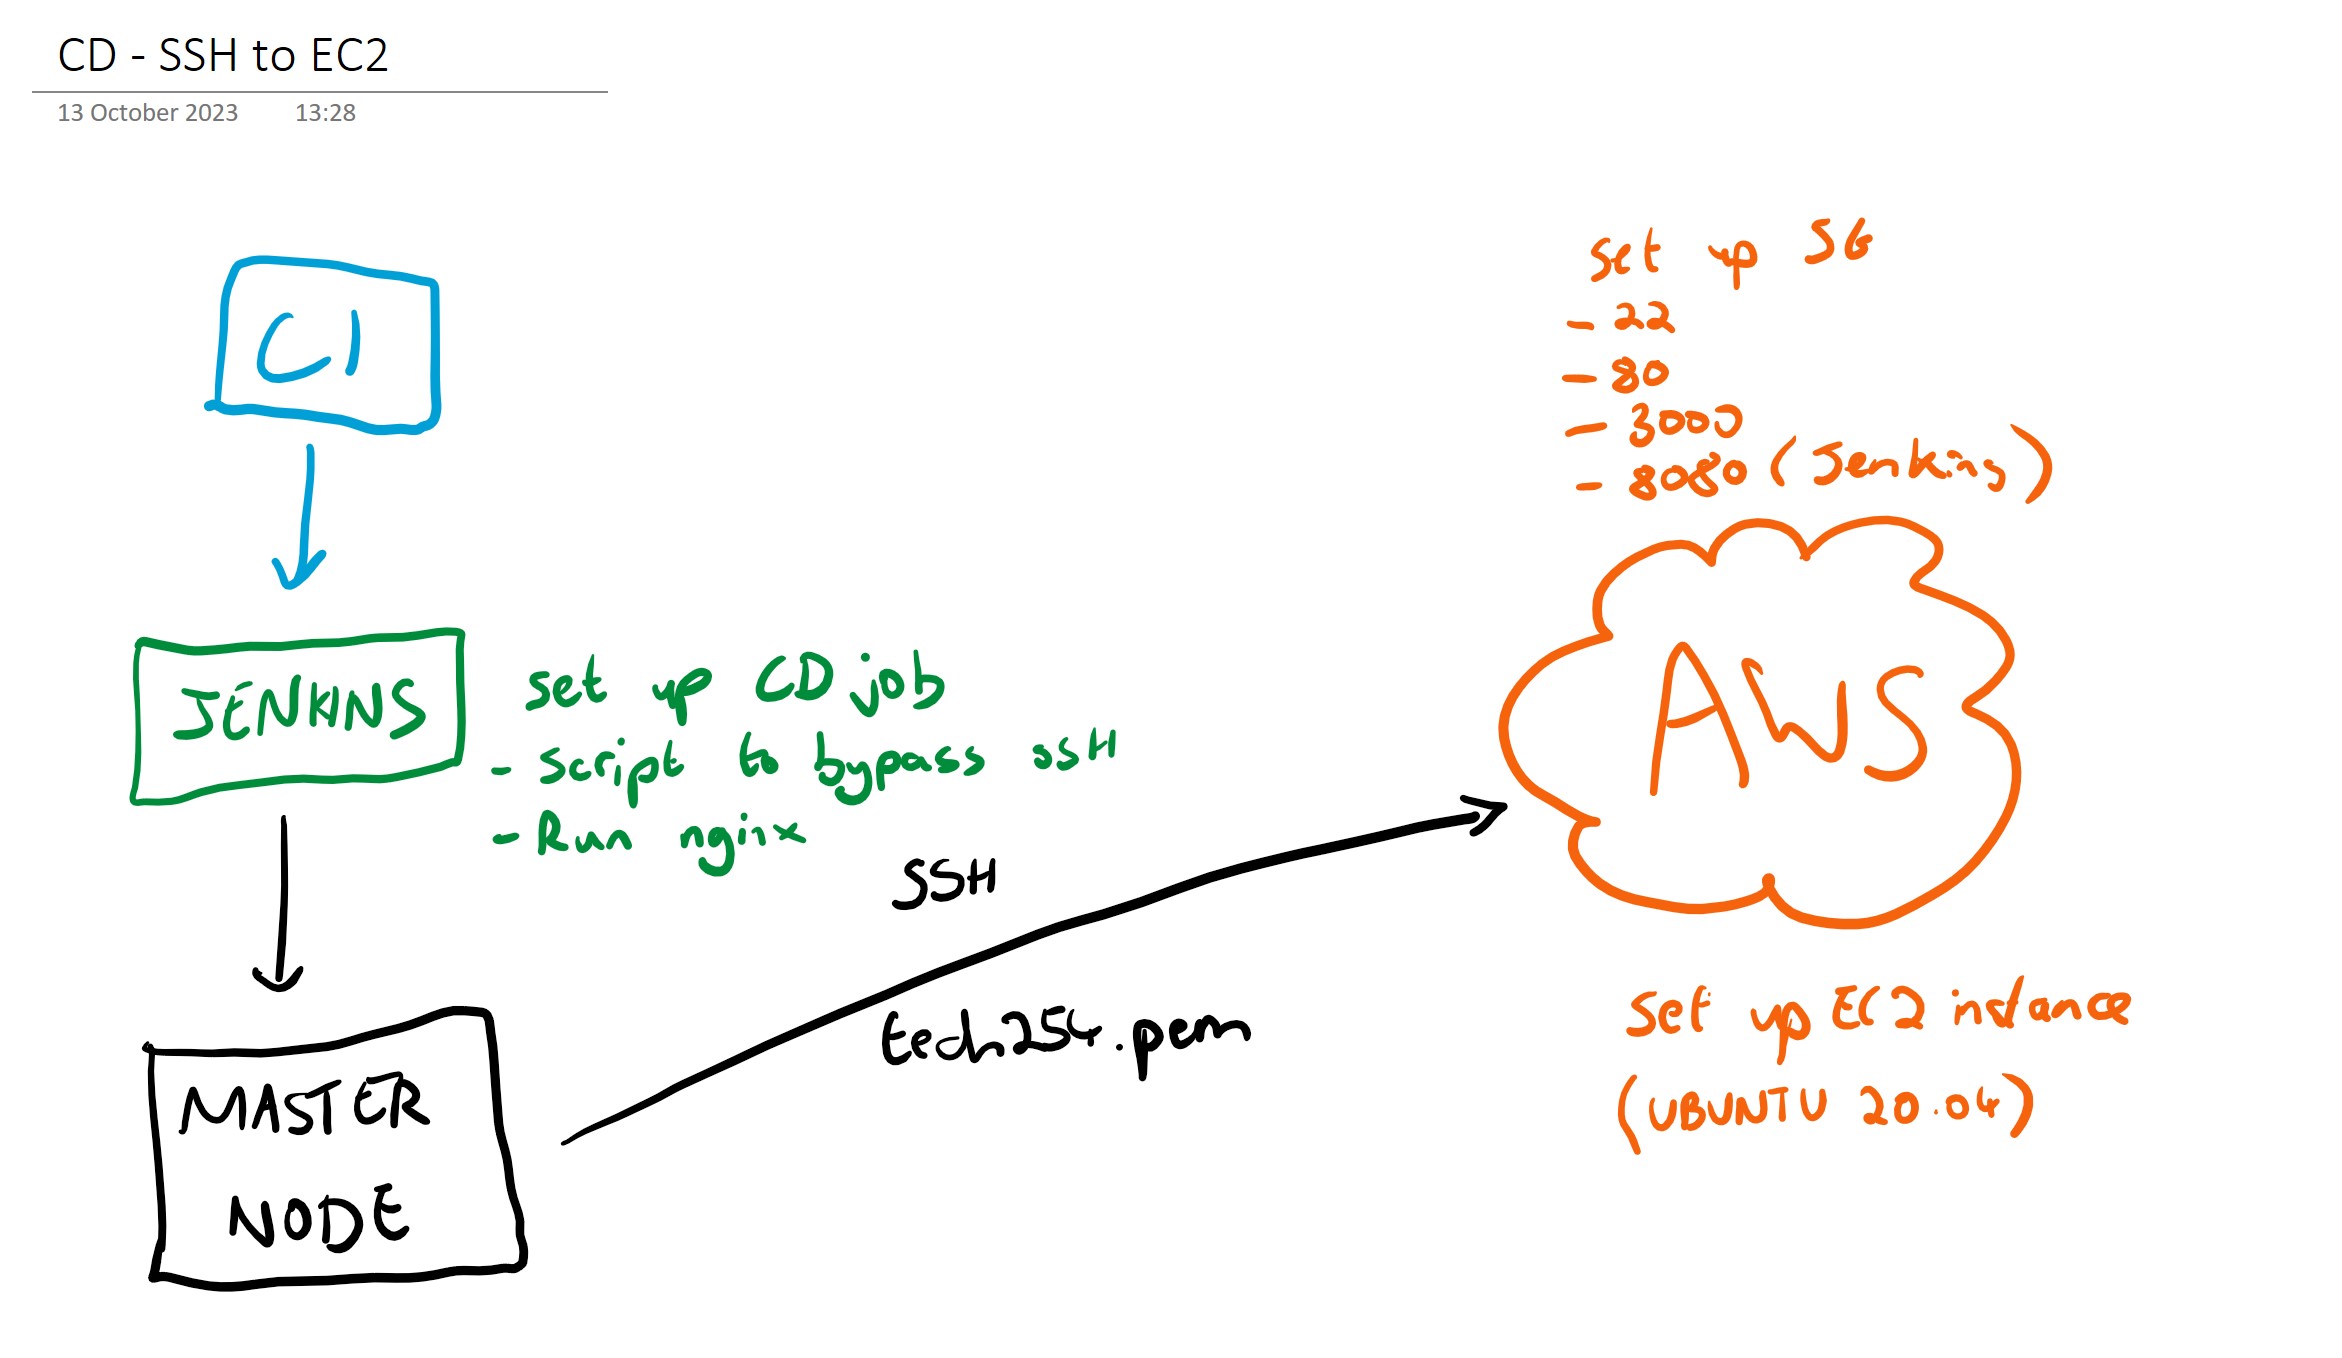 CD - SSH to EC2
13 October 2023 13:28
CI
JENKINS
set up CD job
- script to bypass ssH
- Run nginx
MASTER
NODE
SSH
tech254.pem
set up SG
- 22
- 80
- 3000
- 8080 (Jenkins)
AWS
set up EC2 instance
(UBUNTU 20.04)